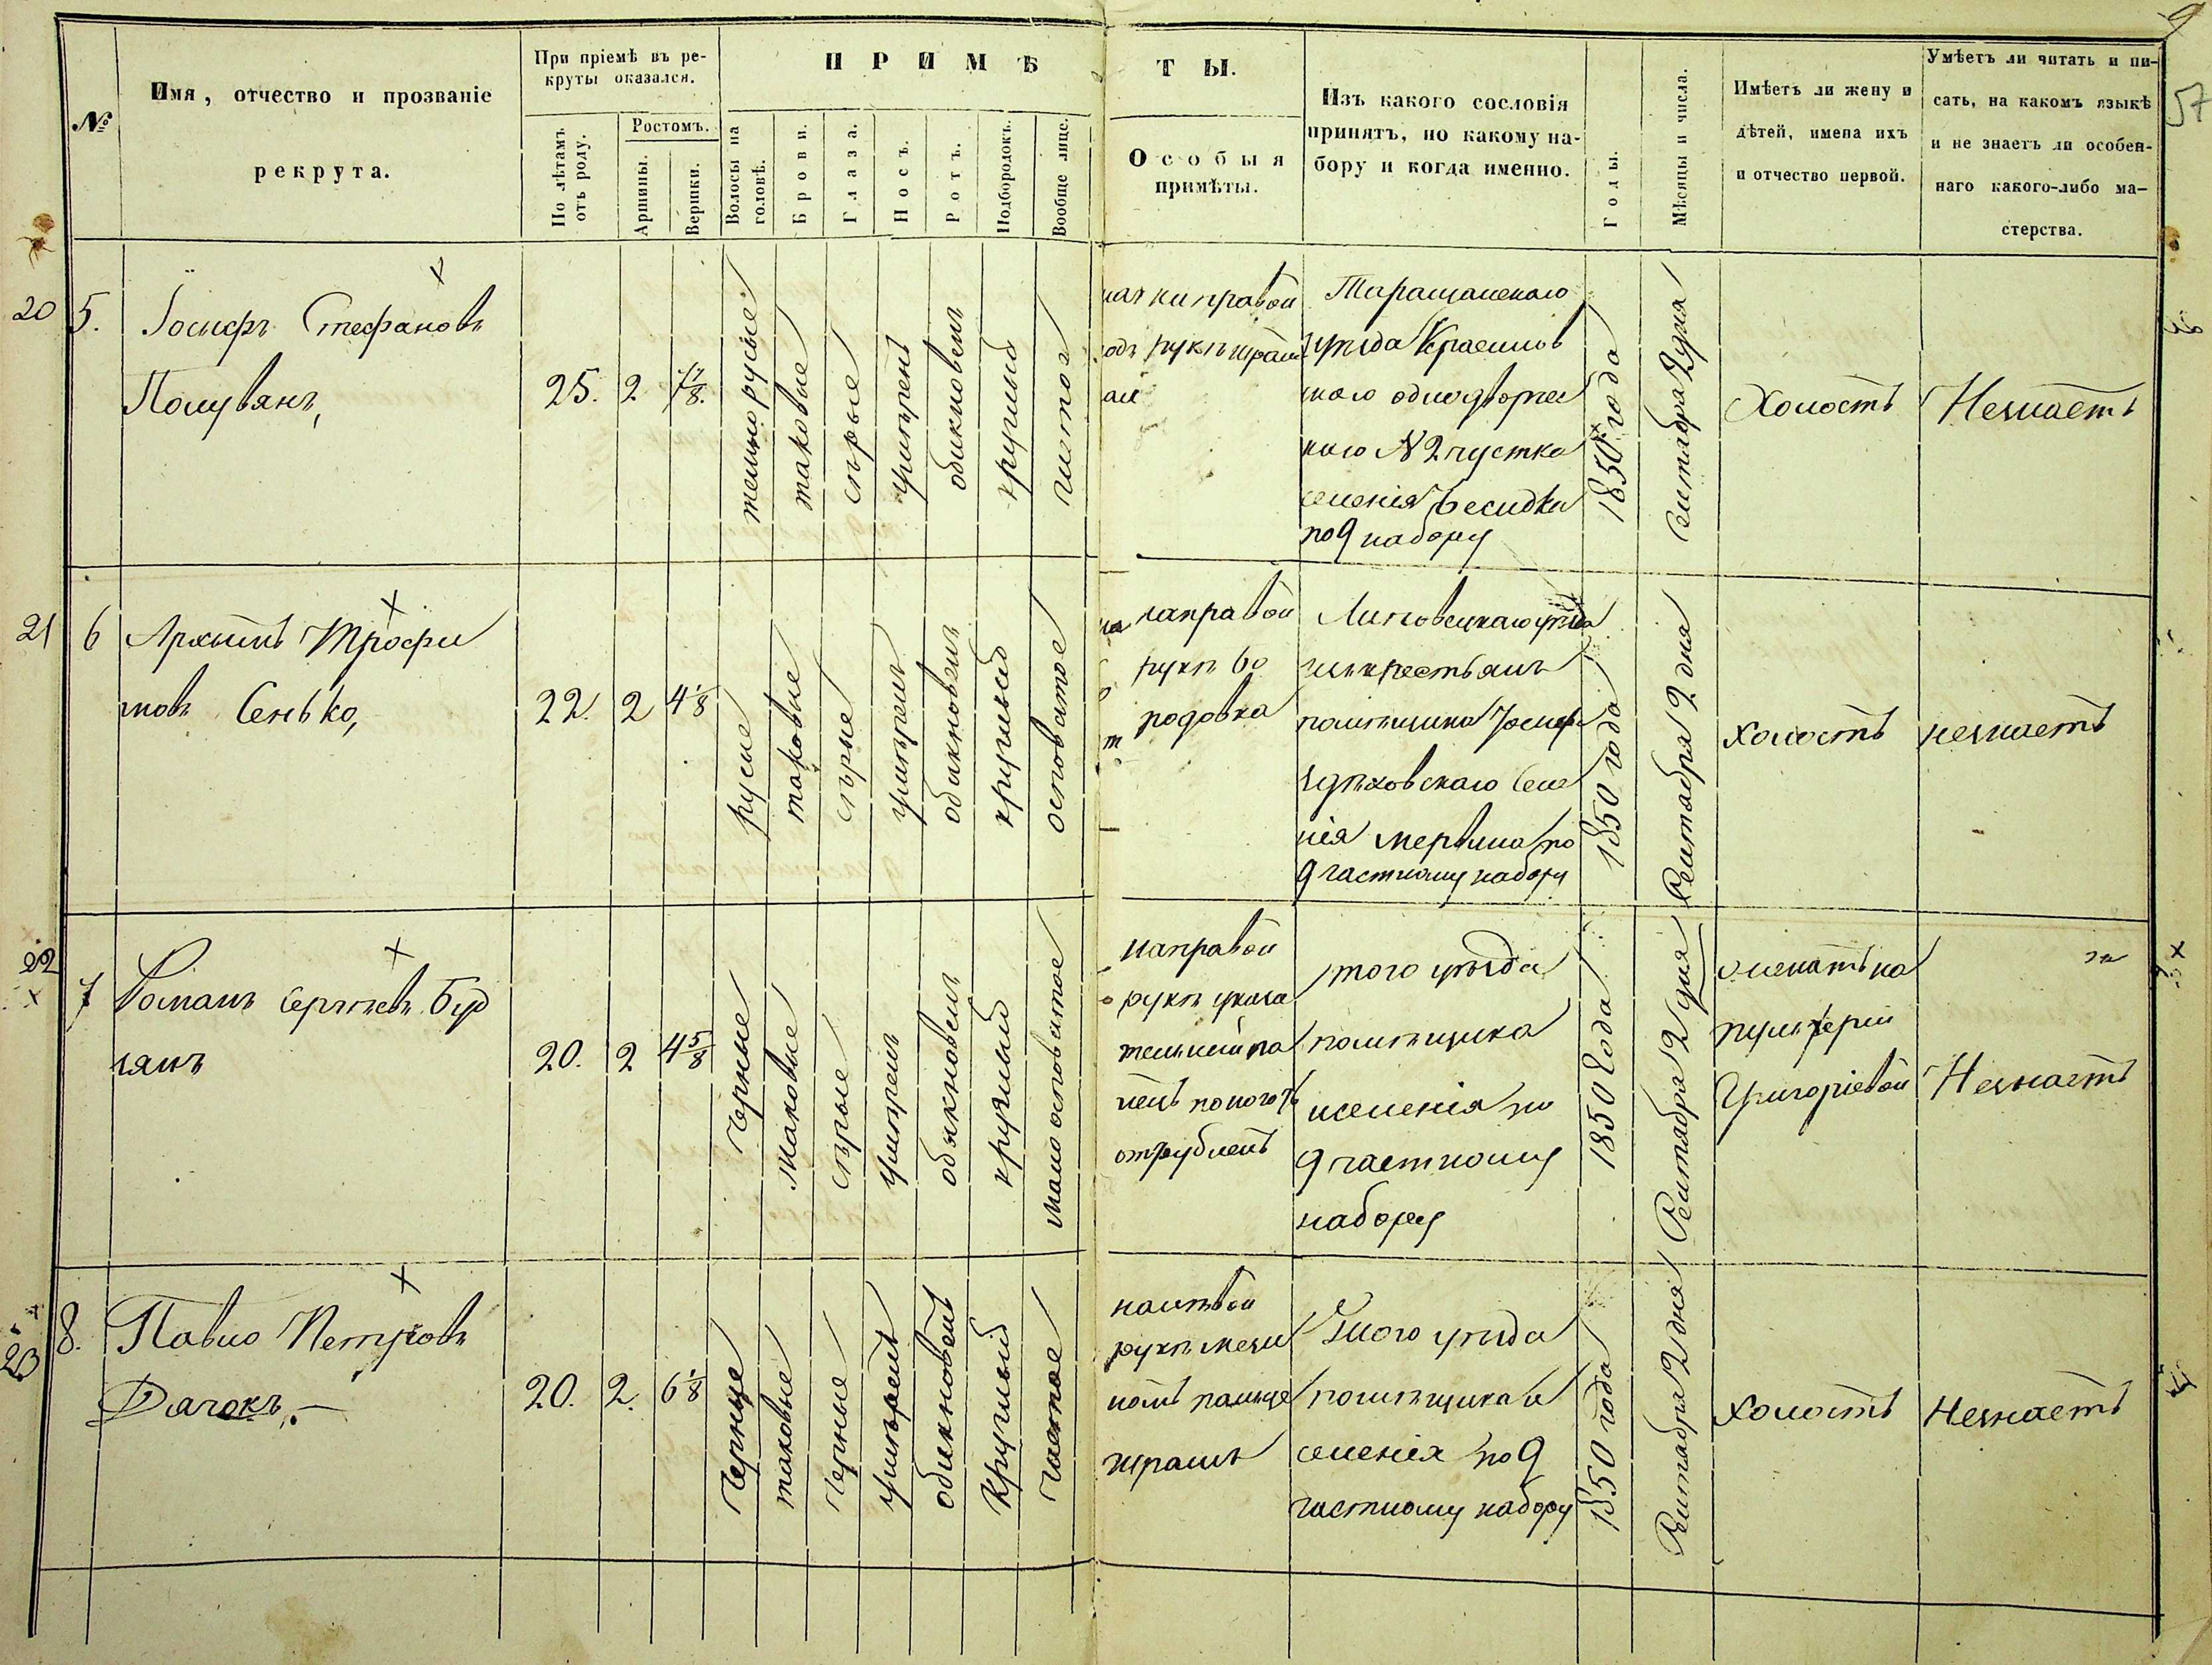 9
57
№
Имя, отчество и прозваніе
рекрута.
При пріемѣ въ ре-
круты оказался.
По лѣтамъ
отъ роду.
Ростомъ.
Аршины.
Вершки.
ПРИМѢ
Волосы на
головѣ.
Брови.
Глаза.
Носъ.
Ротъ.
Подбородокъ.
Вообще лице.
ТЫ.
Особыя
примѣты.
Изъ какого сословія
принятъ, по какому на-
бору и когда именно.
Годы.
Мѣсяцы и числа.
Имѣетъ ли жену и
дѣтей, имена ихъ
и отчество первой.
Умѣетъ ли читать и пи-
сать, на какомъ языкѣ
и не знаетъ ли особен-
наго какого-либо ма-
стерства.
20
5.
Іосифъ Стефановъ
25.
2
темнорусые
таковые
сѣрые
умѣренъ
обыкновенъ
круглый
чистое
правой
рукѣ шрамъ
Таращанскаго
уѣзда
одноворчес
каго № 2 участка
селенія Бесидка
по 9 набору
1850 года
Сентября 2 дня
Холостъ
Незнаетъ
21
6
Архыпъ Трофи
мовъ Сенько,
22.
2
4 1/8
русые
таковые
сѣрые
умѣренъ
обыкновенъ
круглый
осповатое
направой
рукѣ бо
родовка
Липовецкаго уѣзда
изъ крестьянъ
помѣщика
Чдѣховскаго Селе
нія мервина по
9 частному набору
1850 года
Сентабря 2 дня
холостъ
незнаетъ
22
7
Романъ Сергѣевъ Буд
лянъ
20.
2
4 5/8
Черные
таковые
сѣрые
умѣренъ
обыкновенъ
круглый
мало осповатое
направой
рукѣ указа
тельный па
лецъ по ноготь
отрубленъ
того уѣзда
помѣщика
иселенія по
9 частному
набору
1850 Года
Сентября 2 дня
женатъ на
пульхерии
Григоріевой
Незнаетъ
23
8.
Павло Петровъ
Дячокъ.
20.
2.
6 1/8
Черные
таковые
Черные
умѣренъ
обыкновенъ
Круглый
Чистое
налѣвой
рукѣ мези
номъ пальце
шрамъ
Тогого уѣзда
помѣщика и
селенія по 9
частному набору
1850 года
Сентабря 2 дня
Холостъ
Незнаетъ